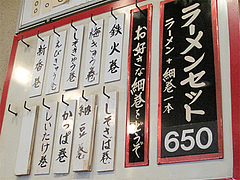 ラーメンセット
ラーメン+細巻一本
650
お好きな細巻をどうぞ
鉄火巻
梅きゅう巻
しそきゅう巻
新香巻
しそさば巻
納豆巻
かっぱ巻
しいたけ巻